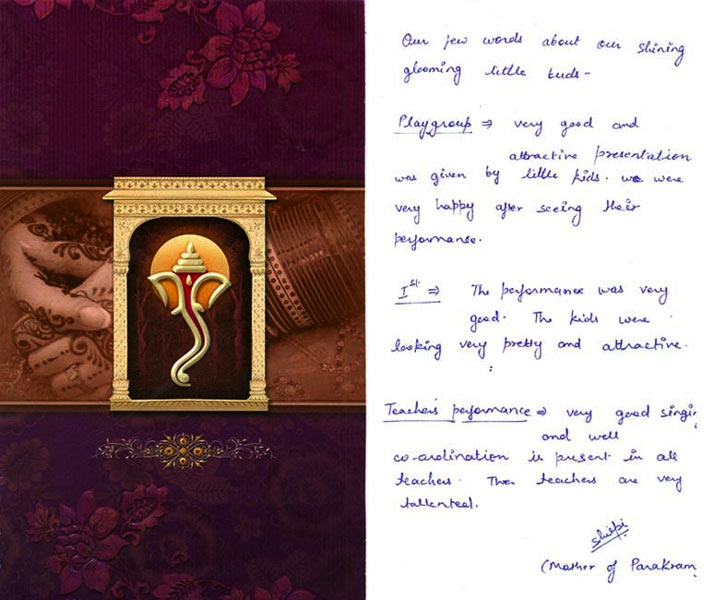 Our few words about our shining
glooming little buds -
Playgroup ⇒ very good and
attractive presentation
was given by little kids. we were
very happy after seeing their
performance.
Ist ⇒ The performance was very
good. The kids were
looking very pretty and attractive.
Teachers performance ⇒ very good singi
and well
co-ordination is present in all
teachers. The teachers are very
tallented.
Shilpi
(Mother of Parakram